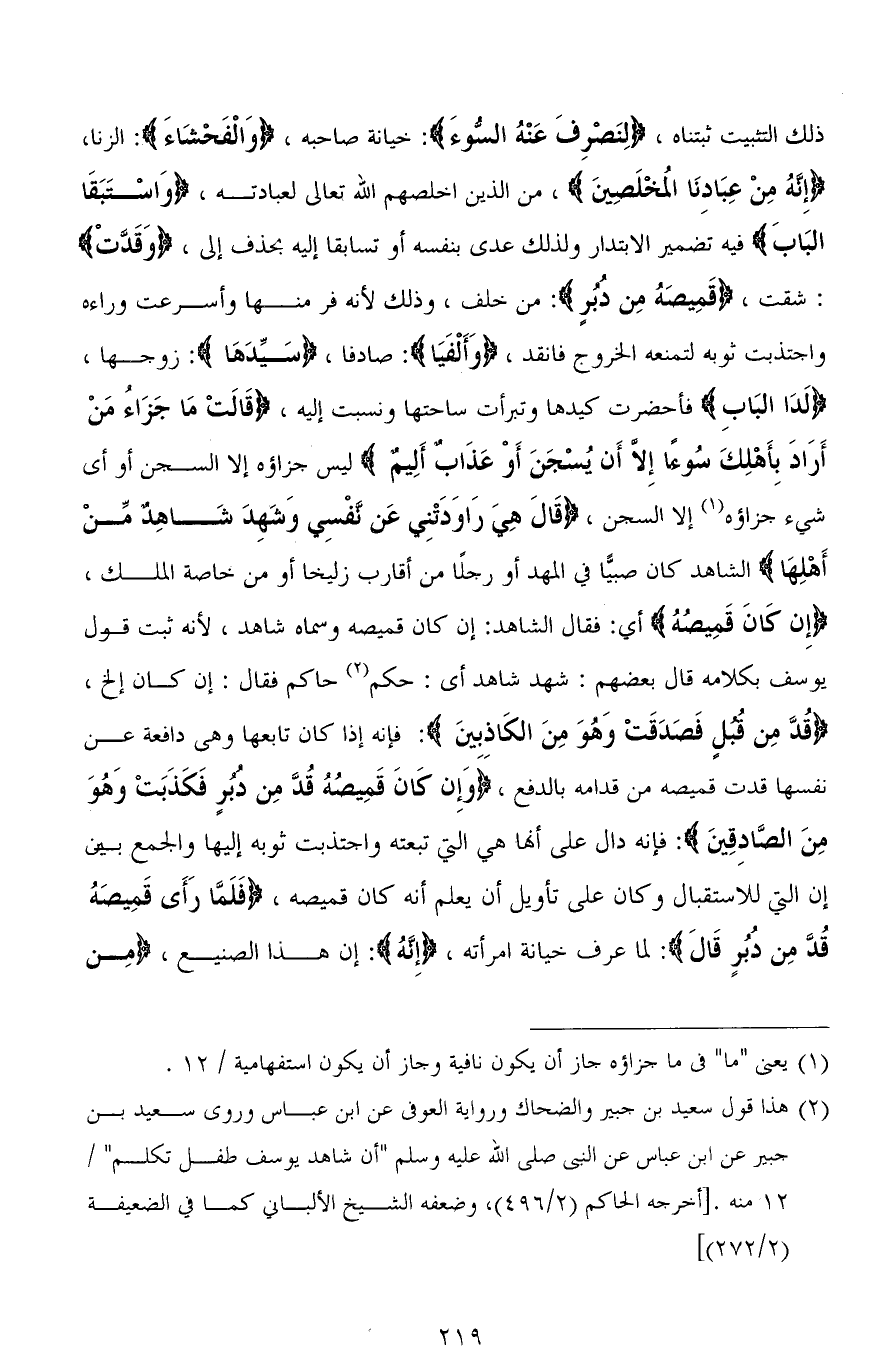 ذلك التثبيت ثبتناه ، ﴿لِنَصْرِفَ عَنْهُ السُّوءَ﴾: خيانة صاحبه ، ﴿وَالْفَحْشَاءَ﴾: الزنا،
﴿إِنَّهُ مِنْ عِبَادِنَا الْمُخْلَصِينَ﴾ ، من الذين اخلصهم الله تعالى لعبادتـــه ، ﴿وَاسْـــتَبَقَا
البَابَ﴾ فيه تضمير الابتدار ولذلك عدى بنفسه أو تسابقا إليه بحذف إلى ، ﴿وَقَدَّتْ﴾
: شقت ، ﴿قَمِيصَهُ مِن دُبُرٍ﴾: من خلف ، وذلك لأنه فر منــــها وأســـرعت وراءه
واجتذبت ثوبه لتمنعه الخروج فانقد ، ﴿وَأَلْفَيَا﴾: صادفا ، ﴿سَـــيِّدَهَا ﴾: زوجـــها ،
﴿لَدَا البَابِ﴾ فأحضرت كيدها وتبرأت ساحتها ونسبت إليه ، ﴿قَالَتْ مَا جَزَاءُ مَنْ
أَرَادَ بِأَهْلِكَ سُوءًا إِلاَّ أَن يُسْجَنَ أَوْ عَذَابٌ أَلِيمٌ ﴾ ليس جزاؤه إلا الســـجن أو أى
شيء جزاؤه(١) إلا السجن ، ﴿قَالَ هِيَ رَاوَدَتْنِي عَن نَّفْسِي وَشَهِدَ شَـــاهِدٌ مِّـــنْ
أَهْلِهَا ﴾ الشاهد كان صبيًّا في المهد أو رجلًا من أقارب زليخا أو من خاصة الملـــك ،
﴿إِن كَانَ قَمِيصُهُ ﴾ أي: فقال الشاهد: إن كان قميصه وسماه شاهد ، لأنه ثبت قـول
يوسف بكلامه قال بعضهم : شهد شاهد أى : حكم(٢) حاكم فقال : إن كـــان إلخ ،
﴿قُدَّ مِن قُبُلٍ فَصَدَقَتْ وَهُوَ مِنَ الكَاذِبِينَ ﴾: فإنه إذا كان تابعها وهى دافعة عـــن
نفسها قدت قميصه من قدامه بالدفع ، ﴿وَإِن كَانَ قَمِيصُهُ قُدَّ مِن دُبُرٍ فَكَذَبَتْ وَهُوَ
مِنَ الصَّادِقِينَ ﴾: فإنه دال على أنها هي التي تبعته واجتذبت ثوبه إليها والجمع بـــين
إن التي للاستقبال وكان على تأويل أن يعلم أنه كان قميصه ، ﴿فَلَمَّا رَأَى قَمِيصَهُ
قُدَّ مِن دُبُرٍ قَالَ﴾: لما عرف خيانة امرأته ، ﴿إِنَّهُ ﴾: إن هـــذا الصنيـــع ، ﴿مِـــن
(١) يعنى "ما" فى ما جزاؤه جاز أن يكون نافية وجاز أن يكون استفهامية / ١٢ .
(٢) هذا قول سعيد بن جبير والضحاك ورواية العوفى عن ابن عبـــاس وروى ســـعيد بـــن
جبير عن ابن عباس عن النبى صلى الله عليه وسلم "أن شاهد يوسف طفـــل تكلـــم" /
١٢ منه .[أخرجه الحاكم (٤٩٦/٢)، وضعفه الشـــيخ الألبـــاني كمـــا في الضعيفـــة
(٢٧٢/٢)]
٢١٩